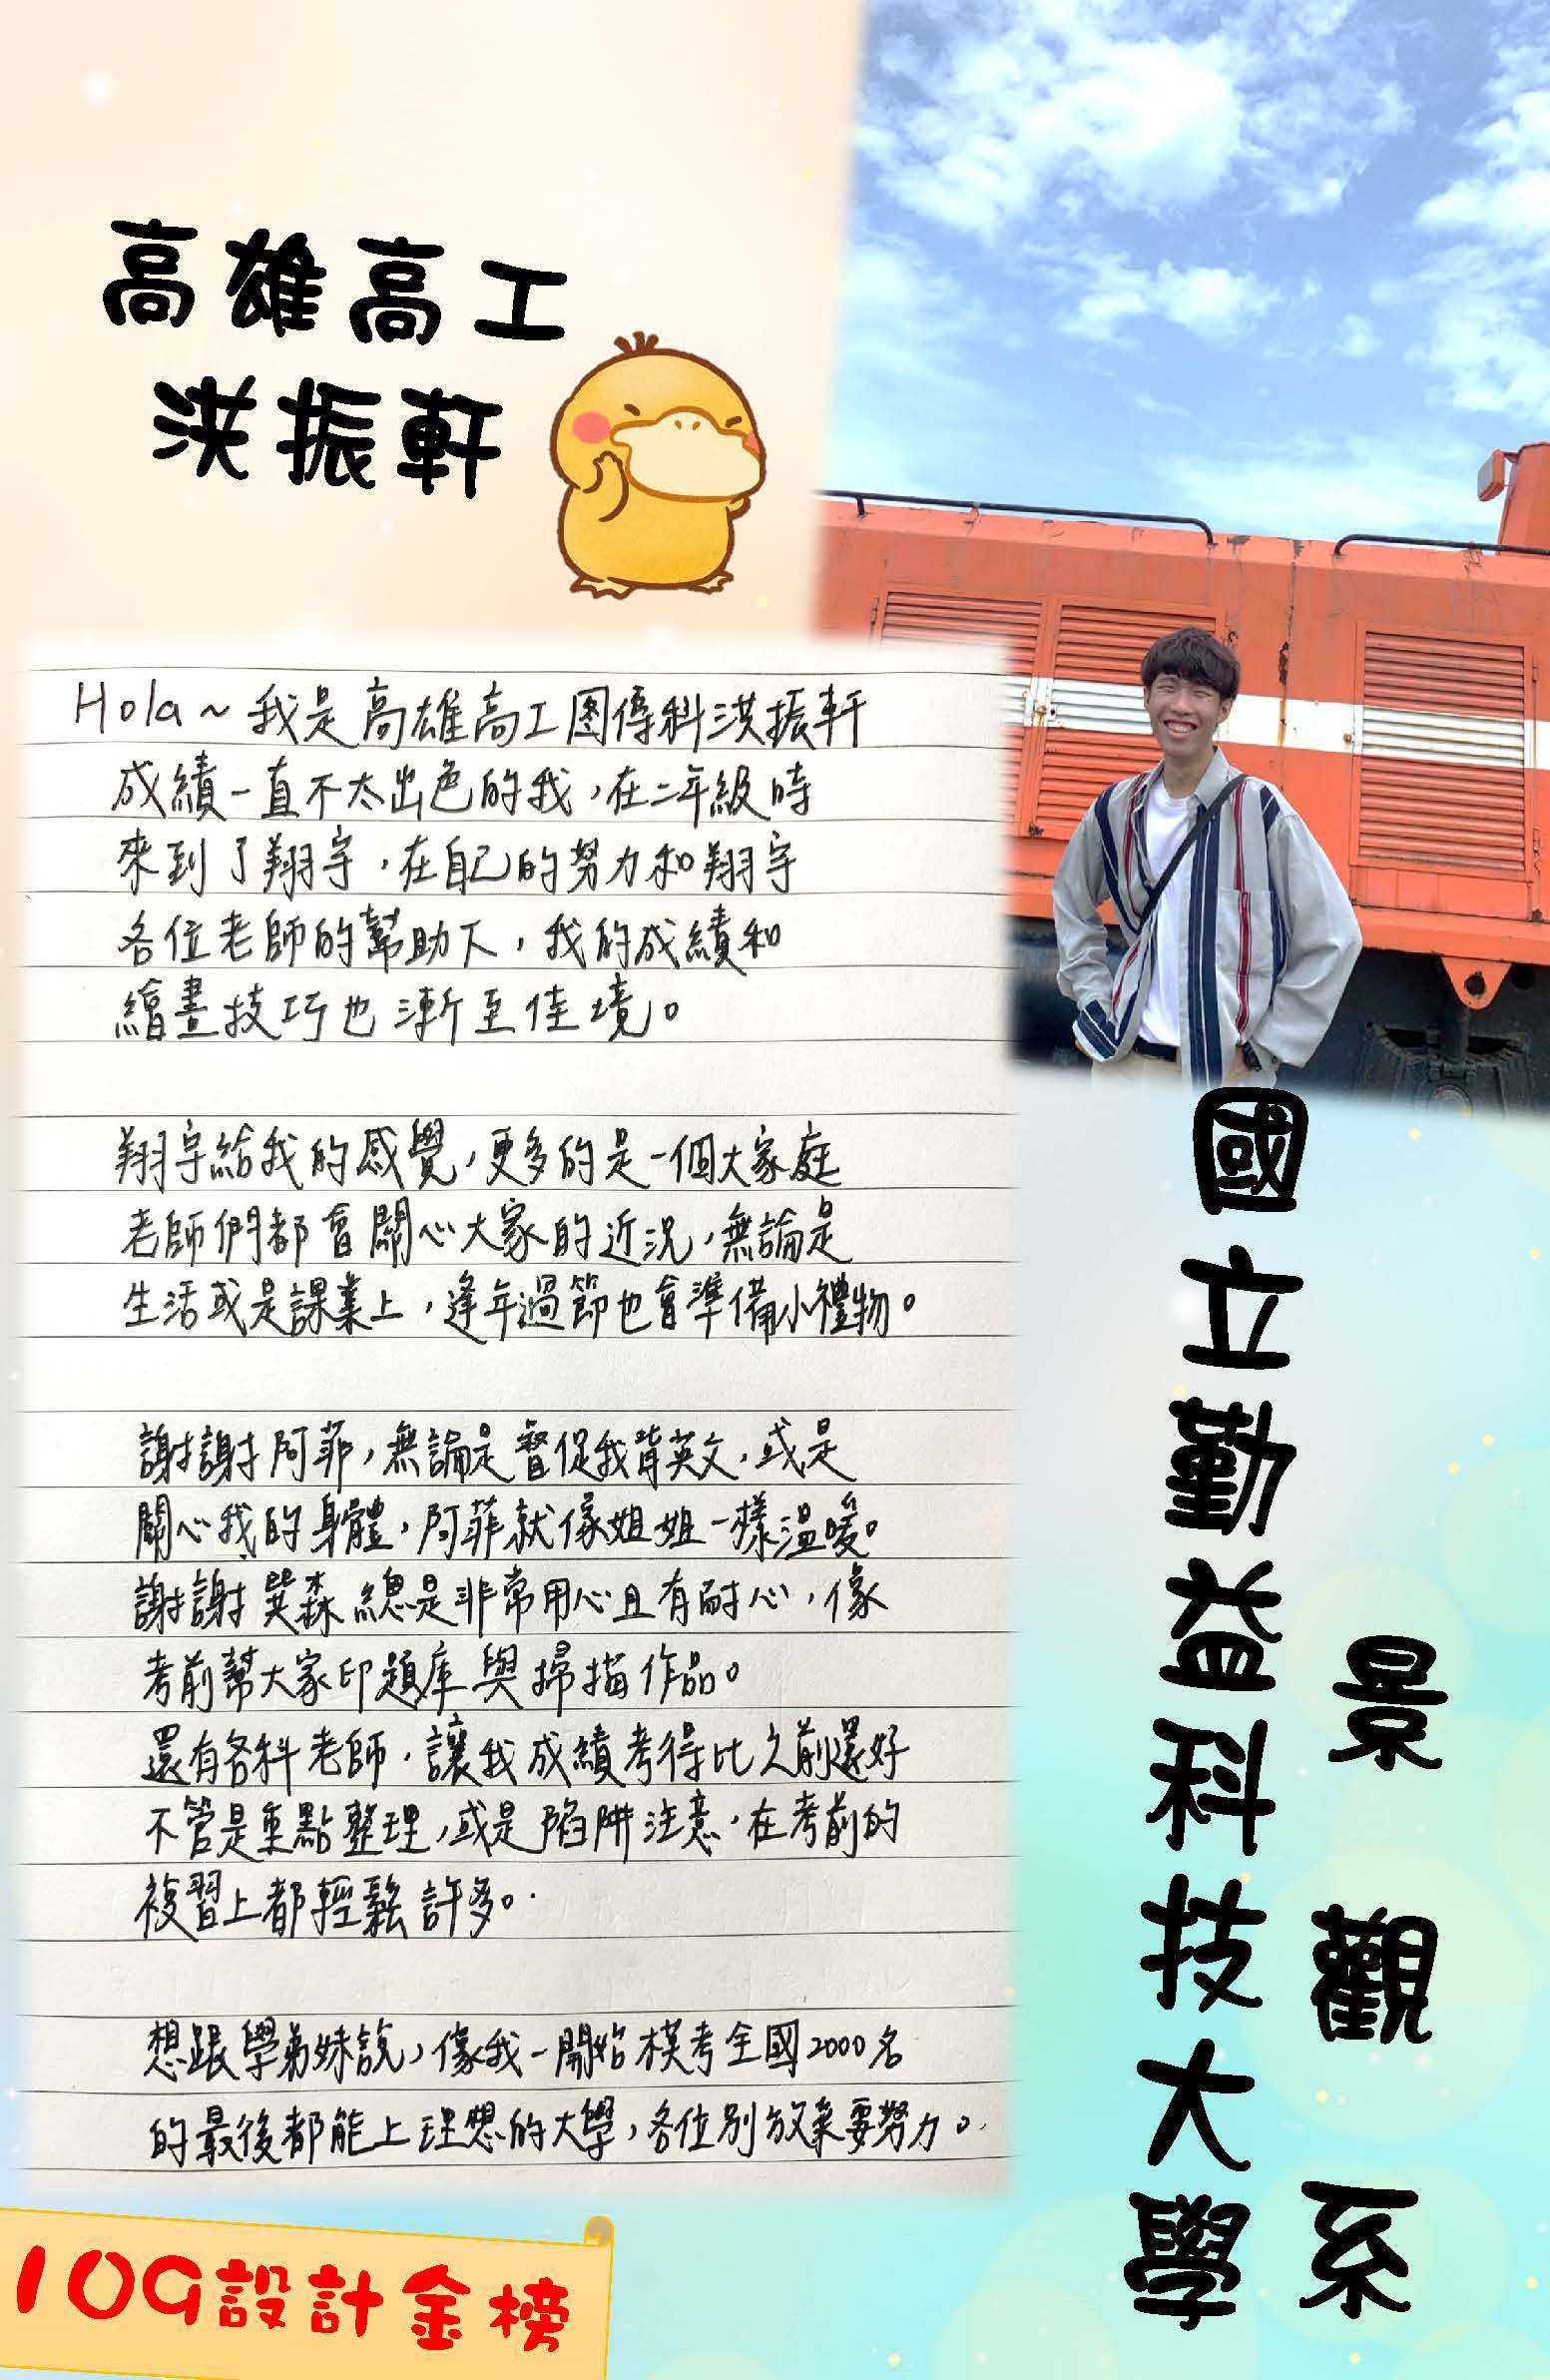 高雄高工
洪振軒
Hola～我是高雄高工圖傳科洪振軒
成績一直不太出色的我，在二年級時
來到了翔宇，在自己的努力和翔宇
各位老師的幫助下，我的成績和
繪畫技巧也漸至佳境。
翔宇給我的感覺，更多的是一個大家庭
老師們都會關心大家的近況，無論是
生活或是課業上，逢年過節也會準備小禮物。
謝謝阿菲，無論是督促我背英文，或是
關心我的身體，阿菲就像姐姐一樣溫暖。
謝謝巽森總是非常用心且有耐心，像
考前幫大家印題庫與掃描作品。
還有各科老師，讓我成績考得比之前還好
不管是重點整理，或是陷阱注意，在考前的
複習上都輕鬆許多。
想跟學弟妹說，像我一開始模考全國2000名
的最後都能上理想的大學，各位別放棄要努力。
國立勤益科技大學
景觀系
109設計金榜